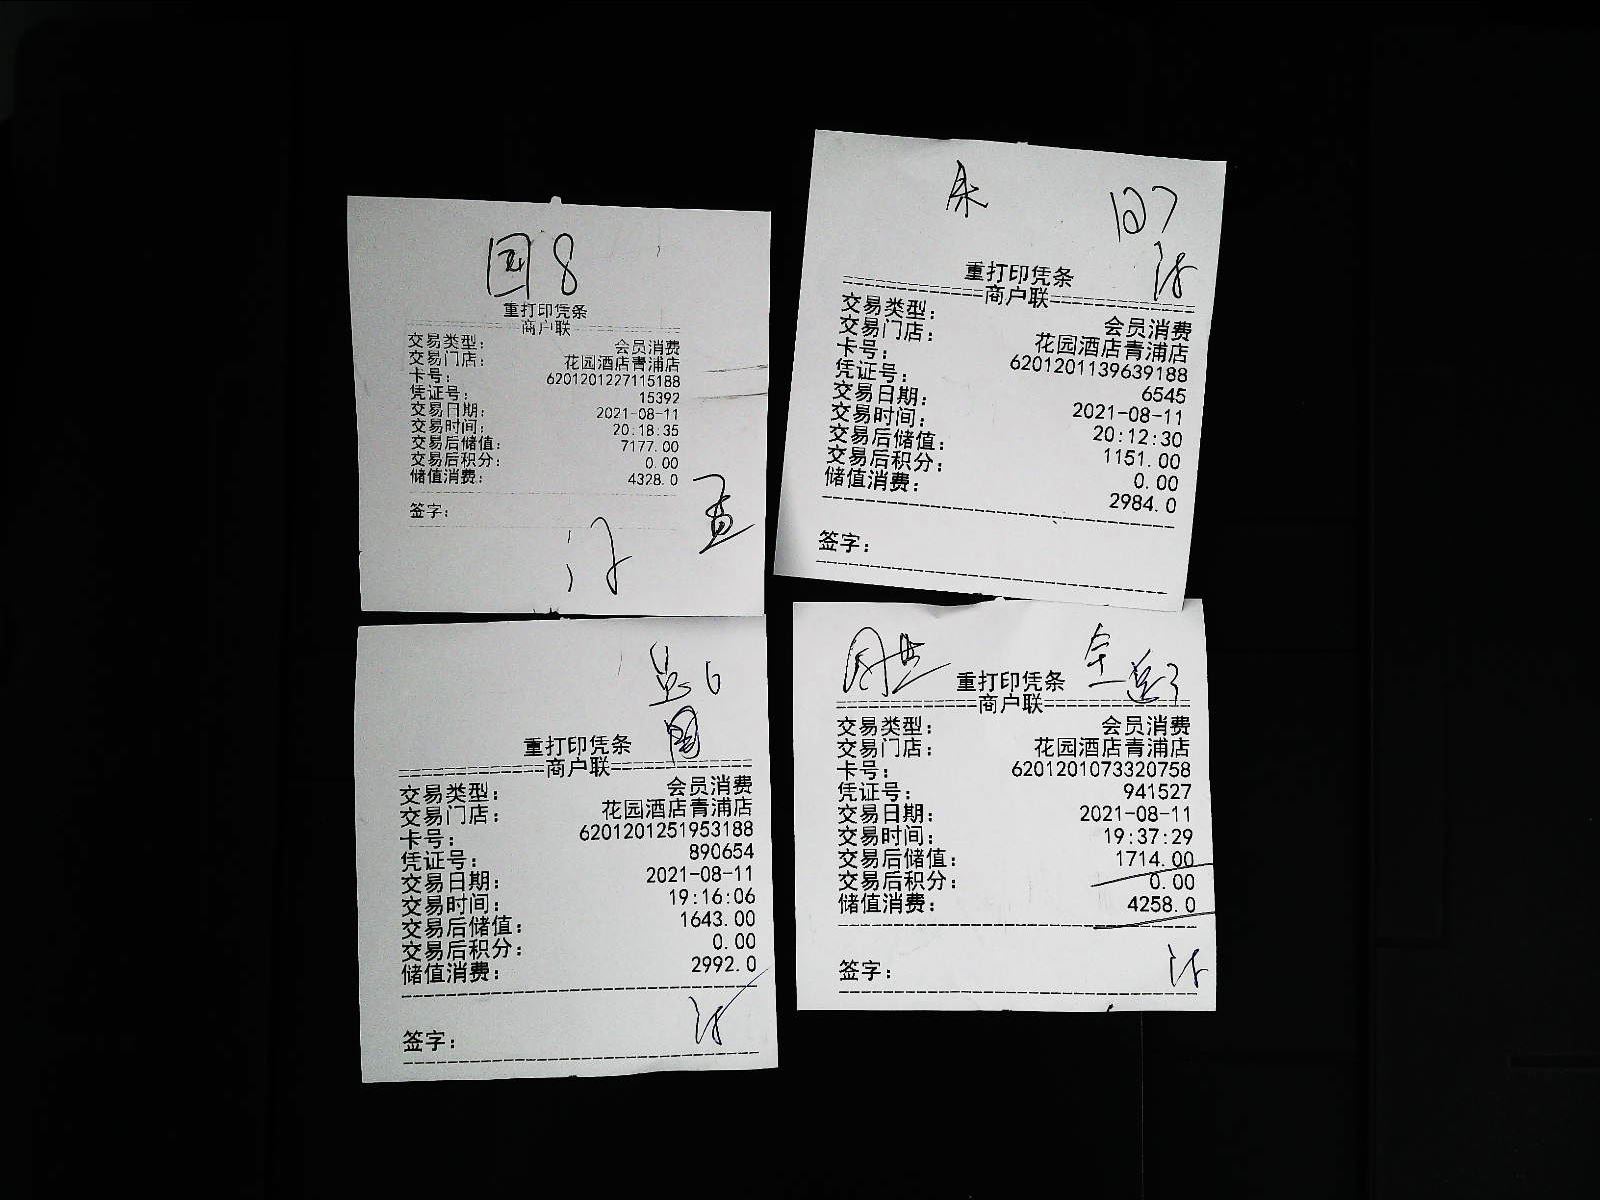 国8
重打印凭条
商户联
交易类型: 会员消费
交易门店: 花园酒店青浦店
卡号: 6201201227115188
凭证号: 15392
交易日期: 2021-08-11
交易时间: 20:18:35
交易后储值: 7177.00
交易后积分: 0.00
储值消费: 4328.0
签字:
107
重打印凭条
商户联
交易类型: 会员消费
交易门店: 花园酒店青浦店
卡号: 6201201139639188
凭证号: 6545
交易日期: 2021-08-11
交易时间: 20:12:30
交易后储值: 1151.00
交易后积分: 0.00
储值消费: 2984.0
签字:
6
重打印凭条
商户联
交易类型: 会员消费
交易门店: 花园酒店青浦店
卡号: 6201201251953188
凭证号: 890654
交易日期: 2021-08-11
交易时间: 19:16:06
交易后储值: 1643.00
交易后积分: 0.00
储值消费: 2992.0
签字:
重打印凭条
商户联
交易类型: 会员消费
交易门店: 花园酒店青浦店
卡号: 6201201073320758
凭证号: 941527
交易日期: 2021-08-11
交易时间: 19:37:29
交易后储值: 1714.00
交易后积分: 0.00
储值消费: 4258.0
签字: